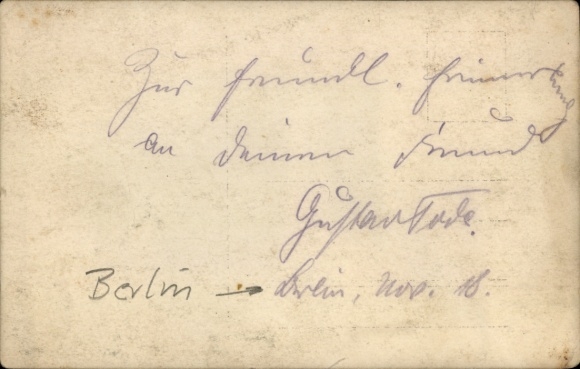 Zur freundl. Erinnerung
an Deinen Freund
Gustav Tode.
Berlin → Berlin, Nov. 18.